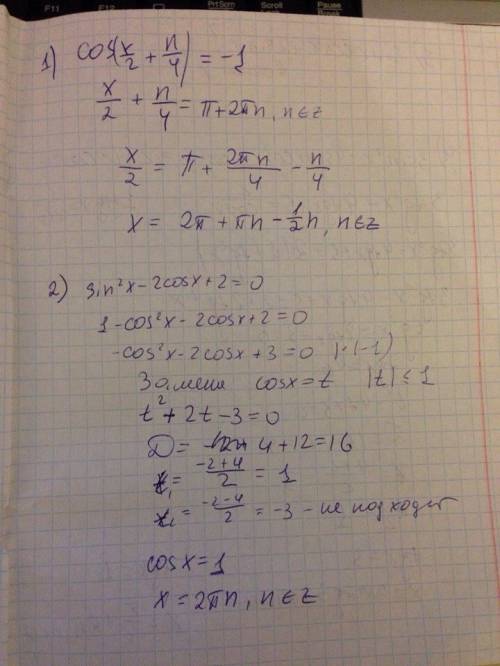 F11 F12 PrtScrn Scroll Pause
1) cos(x/2 + n/4) = -1
x/2 + n/4 = π + 2πn, n∈z
x/2 = π + 2πn/4 - n/4
x = 2π + πn - 1/2 n, n∈z
2) sin²x - 2cosx + 2 = 0
1 - cos²x - 2cosx + 2 = 0
-cos²x - 2cosx + 3 = 0 |·(-1)
Замена cosx = t |t| ≤ 1
t² + 2t - 3 = 0
D = 4 + 12 = 16
t₁ = -2+4/2 = 1
= -2-4/2 = -3 - не подходят
cosx = 1
x = 2πn, n∈z